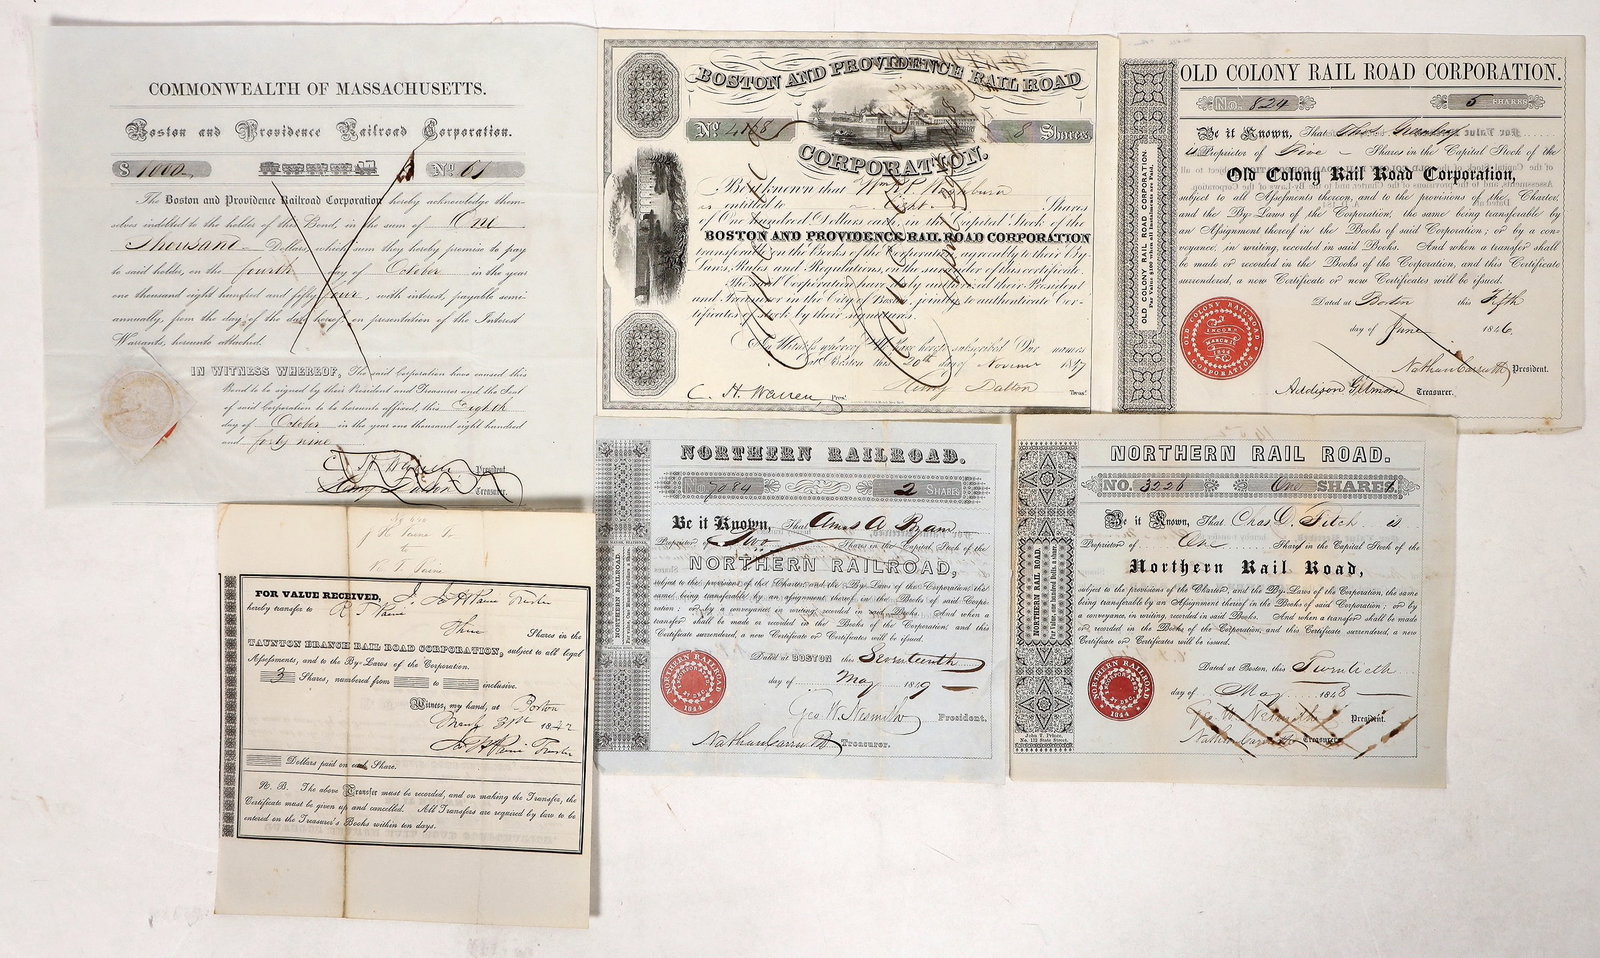 COMMONWEALTH OF MASSACHUSETTS.
Boston and Providence Railroad Corporation.
$ 1000 No 61
The Boston and Providence Railroad Corporation hereby acknowledge them-
selves indebted to the holder of this Bond, in the sum of One
Thousand Dollars, which sum they hereby promise to pay
to said holder, on the fourth day of October in the year
one thousand eight hundred and fifty four, with interest, payable semi-
annually, from the day of the date hereof, on presentation of the Interest
Warrants, hereunto attached.
IN WITNESS WHEREOF, The said Corporation have caused this
Bond to be signed by their President and Treasurer and the Seal
of said Corporation to be hereunto affixed, this Eighth
day of October in the year one thousand eight hundred
and forty nine
President.
Henry Dalton Treasurer.
BOSTON AND PROVIDENCE RAIL ROAD
No 8 Shares
CORPORATION.
Be it known that Wm P. Washburn
is entitled to Eight Shares
of One Hundred Dollars each, in the Capital Stock of the
BOSTON AND PROVIDENCE RAIL ROAD CORPORATION
transferable on the Books of the Corporation agreeably to their By-
Laws, Rules and Regulations, on the surrender of this certificate.
The said Corporation have duly authorized their President
and Treasurer in the City of Boston, jointly to authenticate Cer-
tificates of stock by their signatures.
In Witness whereof We have hereto subscribed Our names
at Boston this 20th day of Novem
C. H. Warren Prest. Henry Dalton Treasr.
OLD COLONY RAIL ROAD CORPORATION.
No. 824 5 SHARES
OLD COLONY RAIL ROAD CORPORATION.
Par Value $100 when all Instalments are Paid.
Be it Known, That Thos Greenleaf
is Proprietor of Five Shares in the Capital Stock of the
Old Colony Rail Road Corporation,
subject to all Assessments thereon, and to the provisions of the Charter,
and the By-Laws of the Corporation, the same being transferable by
an Assignment thereof in the Books of said Corporation; or by a con-
veyance, in writing, recorded in said Books. And when a transfer shall
be made or recorded in the Books of the Corporation, and this Certificate
surrendered, a new Certificate or new Certificates will be issued.
Dated at Boston this Fifth
day of June 1846
OLD COLONY RAIL-ROAD CORPORATION
INCORP. MARCH 16 1844
Nathan Carruth President.
Addison Gilmore Treasurer.
J H Paine Tr
to
R T Paine
FOR VALUE RECEIVED, I, Jo H Paine Trustee
hereby transfer to R T Paine
Three Shares in the
TAUNTON BRANCH RAIL ROAD CORPORATION, subject to all legal
Assessments, and to the By-Laws of the Corporation.
3 Shares, numbered from to inclusive.
Witness, my hand, at Boston
March 31st 1842
Jo H Paine Trustee
Dollars paid on each Share.
N. B. The above Transfer must be recorded, and on making the Transfer, the
Certificate must be given up and cancelled. All Transfers are required by law to be
entered on the Treasurer's Books within ten days.
NORTHERN RAILROAD.
No. 7084 2 SHARES
NORTHERN RAILROAD.
Par value, One Hundred Dollars a Share.
Be it Known, That Amos A Byam
Proprietor of Two Shares in the Capital Stock of the
NORTHERN RAILROAD,
subject to the provisions of the Charter, and the By-Laws of the Corporation; the
same being transferable by an assignment thereof in the Books of said Corpo-
ration; or by a conveyance in writing, recorded in said Books. And when a
transfer shall be made or recorded in the Books of the Corporation; and this
Certificate surrendered, a new Certificate or Certificates will be issued.
Dated at BOSTON this Seventeenth
day of May 1849
NORTHERN RAILROAD CORPORATION 27 DEC. 1844
Geo W Nesmith President.
Nathan Carruth Treasurer.
NORTHERN RAIL ROAD.
NO. 3226 One SHARES.
NORTHERN RAIL ROAD.
Par Value, one hundred Dolls. a share
Be it Known, That Chas C. Fitch is
Proprietor of One Share in the Capital Stock of the
Northern Rail Road,
subject to the provisions of the Charter, and the By-Laws of the Corporation, the same
being transferable by an Assignment thereof in the Books of said Corporation; or by
a conveyance, in writing, recorded in said Books. And when a transfer shall be made
or recorded in the Books of the Corporation, and this Certificate surrendered, a new
Certificate or Certificates will be issued.
Dated at Boston, this Twentieth
day of May 1848
NORTHERN RAILROAD CORPORATION 27 DEC. 1844
Geo W Nesmith President.
Nathan Carruth Treasurer.
John T. Prince,
No. 112 State Street.